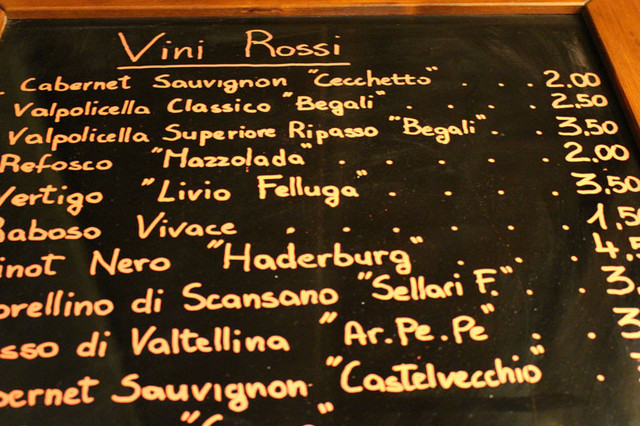 Vini Rossi
Cabernet Sauvignon "Cecchetto" . . . 2.00
Valpolicella Classico "Begali" . . . 2.50
Valpolicella Superiore Ripasso "Begali" . . 3.50
Refosco "Mazzolada" . . . . . 2.00
Vertigo "Livio Felluga" . . . . 3.50
Raboso Vivace . . . . . . 1.5
inot Nero "Haderburg" . . . 4.5
orellino di Scansano "Sellari F." . . 3.
sso di Valtellina "Ar.Pe.Pe" . . 3
bernet Sauvignon "Castelvecchio" . 3